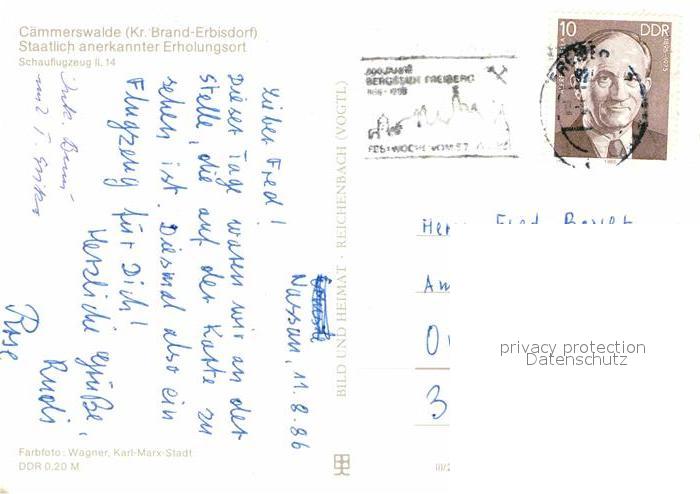 Cämmerswalde (Kr. Brand-Erbisdorf)
Staatlich anerkannter Erholungsort
Schauflugzeug IL 14
Nassau, 11.8.86
Lieber Fred!
Dieser Tage waren wir an der
Stelle, die auf der Karte zu
sehen ist. Diesmal also ein
Flugzeug für Dich!
Herzliche Grüße,
Rudi
Rose
und T.
Farbfoto: Wagner, Karl-Marx-Stadt
DDR 0,20 M
BILD UND HEIMAT · REICHENBACH (VOGTL)
800 JAHRE
BERGSTADT FREIBERG
1186-1986
FESTWOCHE VOM
10 DDR
Fred
privacy protection
Datenschutz